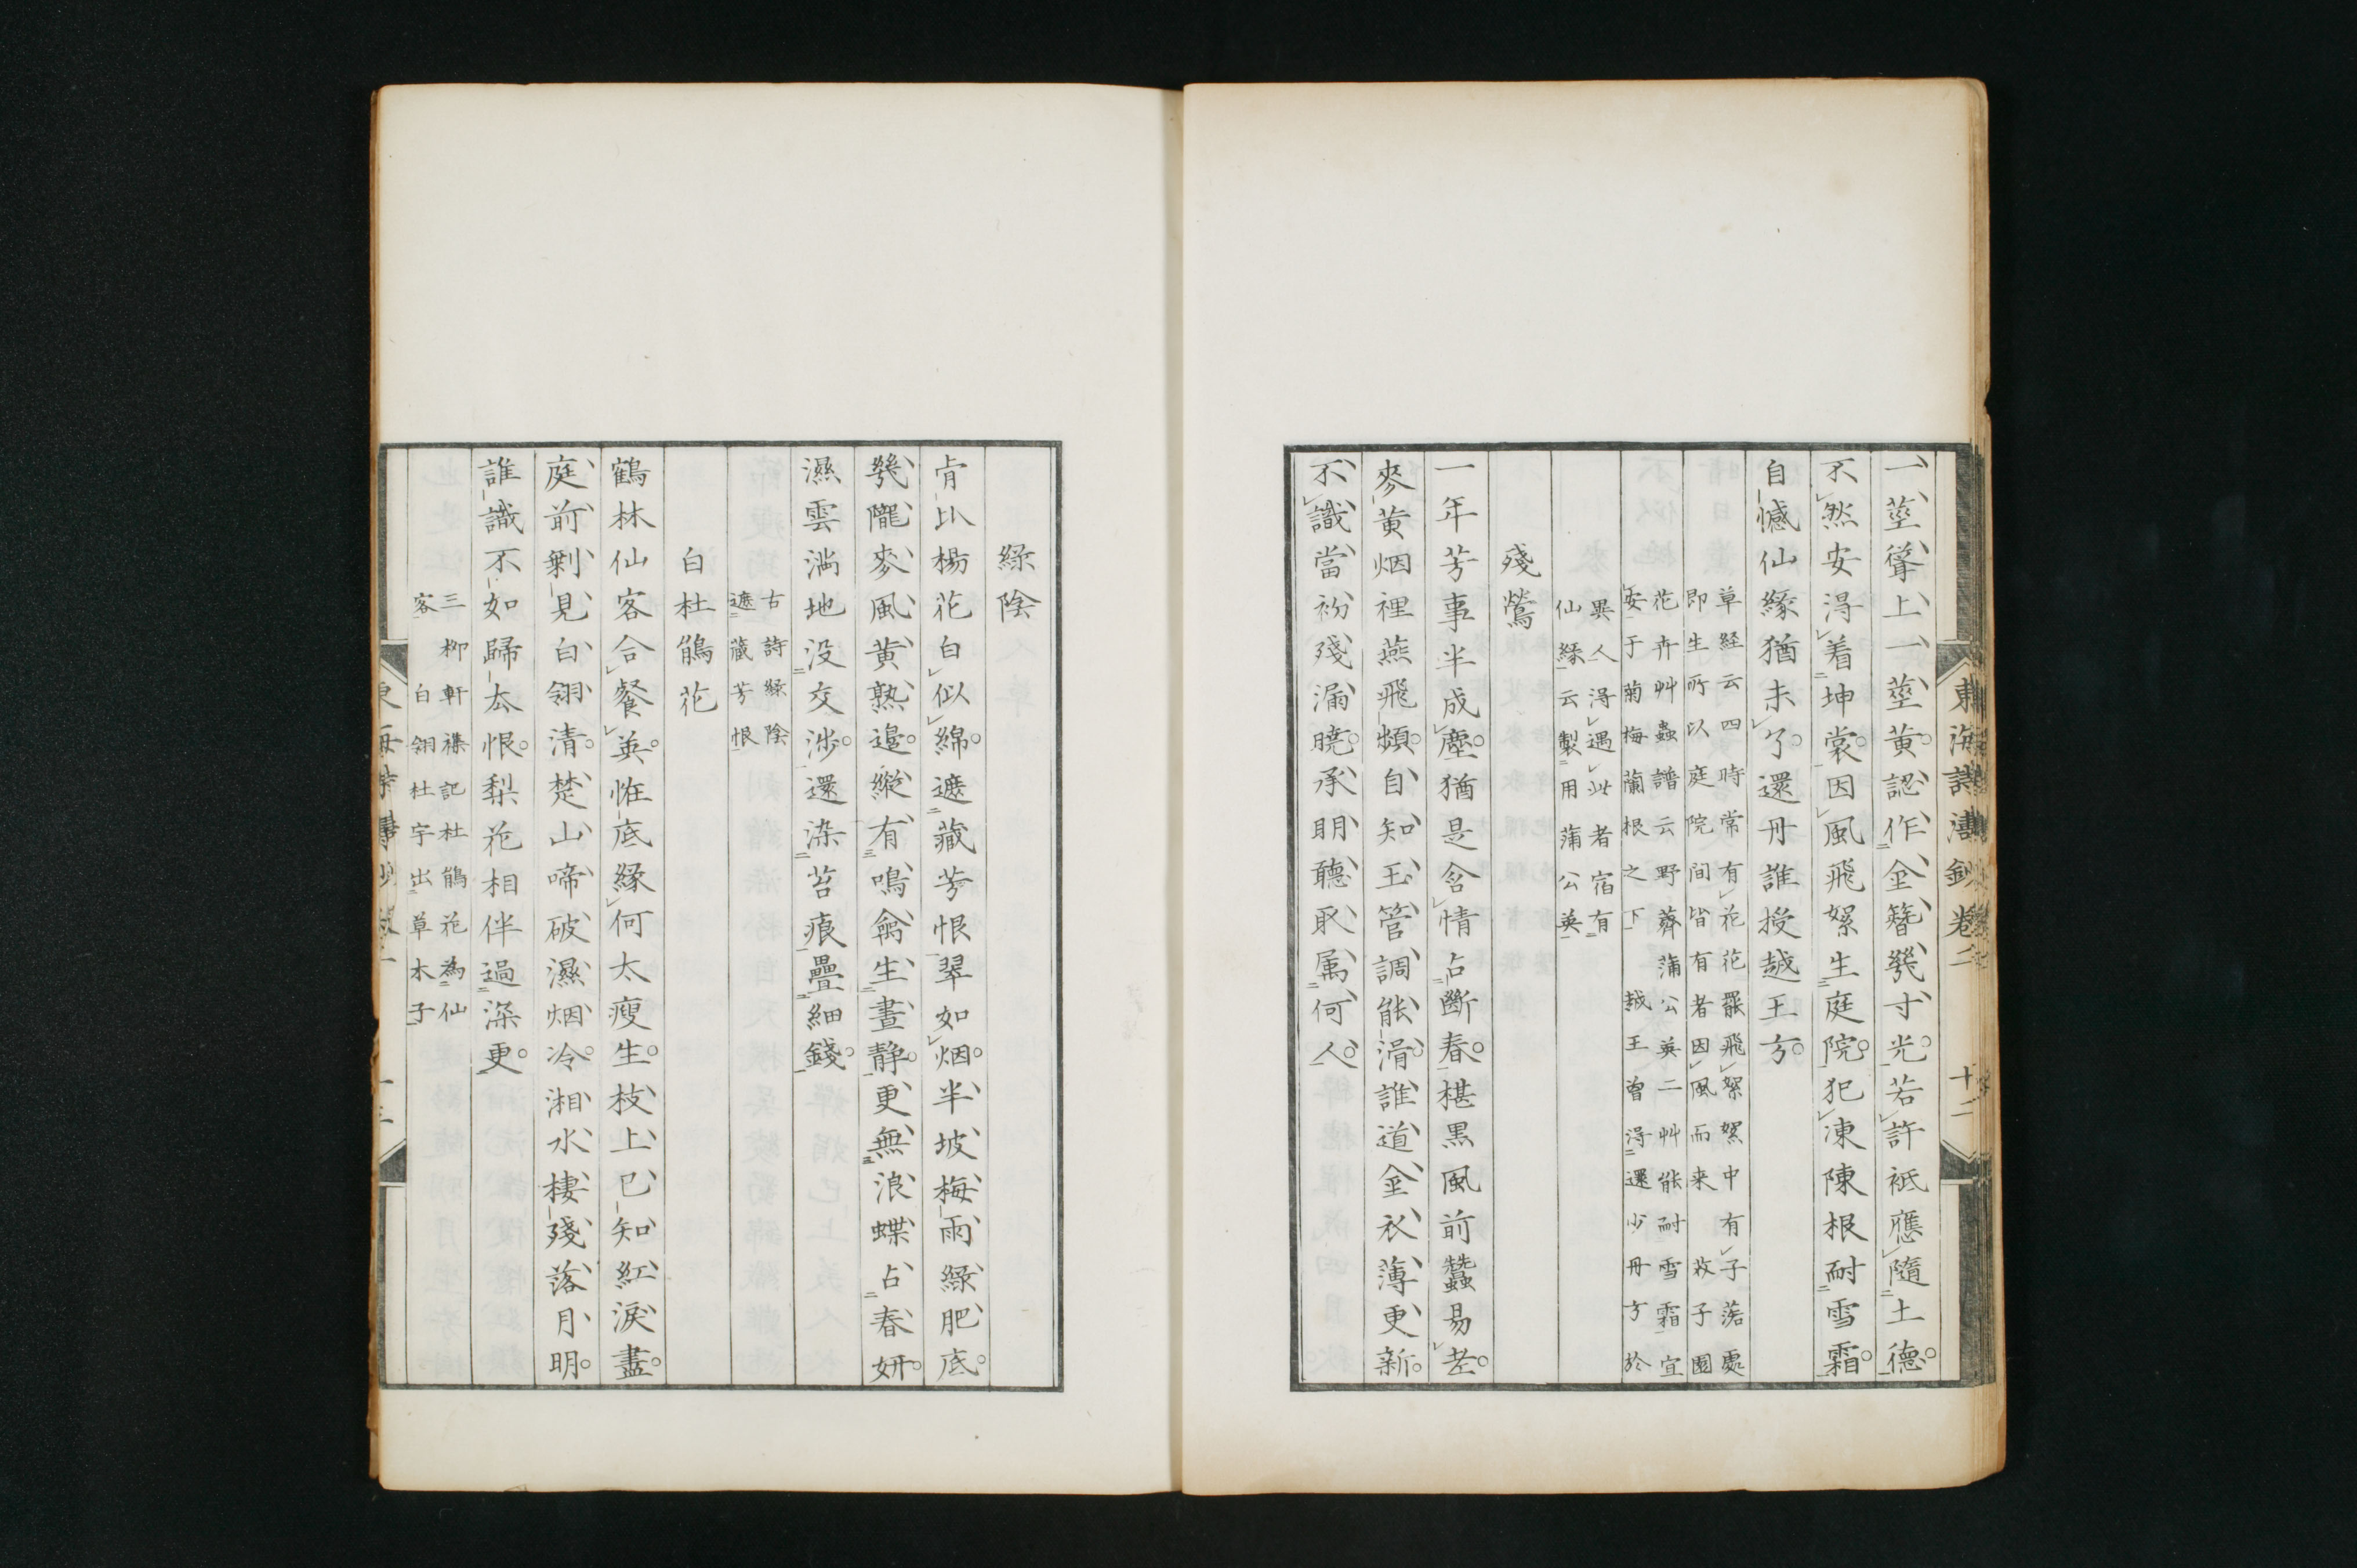 一莖聳上一莖黃認作金簪幾寸光若許祗應隨土德
不然安得着坤裳因風飛絮生庭院犯凍陳根耐雪霜
自憾仙緣猶未了還丹誰授越王方
草経云四時常有花花罷飛絮絮中有子落處
即生所以庭院间皆有者因風而来 救子園
花卉艸蟲譜云野薺蒲公英二艸能耐雪霜宜
安于菊梅蘭根之下 越王曽得還少丹方於
異人得遇此者宿有
仙緣云製用蒲公英
殘鶯
一年芳事半成塵猶是含情占斷春椹黒風前蠶易老
麥黄烟裡燕飛頻自知玉管調能滑誰道金衣薄更新
不識當初殘漏曉承明聽取属何人
東海詩濤鈔卷二 十二
綠陰
肯比楊花白似綿遮藏芳恨翠如烟半坡梅雨綠肥底
幾隴麥風黄熟邉縱有鳴禽生晝静更無浪蝶占春妍
濕雲満地没交渉還染苔痕疊細錢
古詩綠陰
遮藏芳恨
白杜鵑花
鶴林仙客合餐英恠底緣何太瘦生枝上已知紅淚盡
庭前剰見白翎清楚山啼破濕烟冷湘水棲殘落月明
誰識不如歸去恨梨花相伴過深更
三柳軒襍記杜鵑花為仙
客 白翎杜宇出草木子